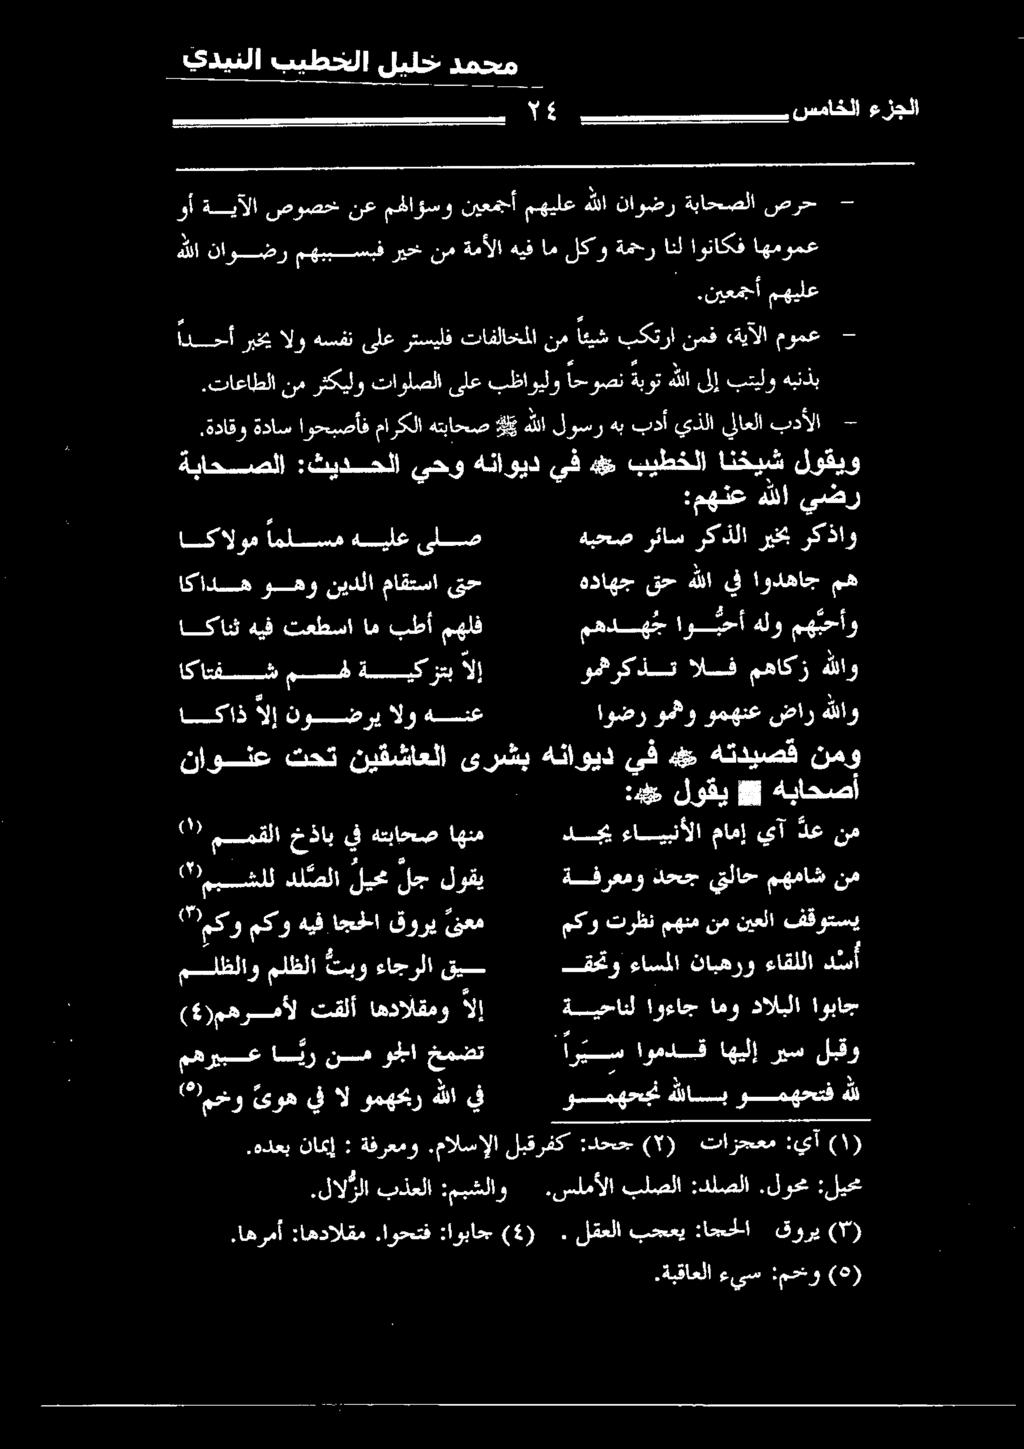 محمد خليل الخطيب النيدي
الجزء الخامس ٢٤
- حرص الصحابة رضوان الله عليهم أجمعين وسؤالهم عن خصوص الآية أو
عمومها فكانوا لنا رحمة وكل ما فيه الأمة من خير فبسببهم رضوان الله
عليهم أجمعين.
- عموم الآية، فمن ارتكب شيئاً من المخالفات فليستر على نفسه ولا يخبر أحداً
بذنبه وليتب إلى الله توبة نصوحاً وليواظب على الصلوات وليكثر من الطاعات.
- الأدب العالي الذي أدب به رسول الله ﷺ صحابته الكرام فأصبحوا سادة وقادة.
ويقول شيخنا الخطيب ﵁ في ديوانه وحي الحديث: الصحابة
رضي الله عنهم:
واذكر بخير الذكر سائر صحبه صلى عليه مسلماً مولاكا
هم جاهدوا في الله حق جهاده حتى استقام الدين وهو هداكا
وأحبَّهم وله أحبُّوا جُهدهم فلهم أطب ما اسطعت فيه ثناكا
والله زكاهم فلا تذكرهمو إلاّ بتزكية لهم شفتاكا
والله راض عنهمو وهمو رضوا عنه ولا يرضون إلاّ ذاكا
ومن قصيدته ﵁ في ديوانه بشرى العاشقين تحت عنوان
أصحابه يقول ﵁:
من عدَّ آي إمام الأنبياء يجد منها صحابته في باذخ القمم (١)
من شامهم حالتي جحد ومعرفة يقول جلَّ محيلُ الصَّلد للشبم(٢)
يستوقف العين من منهم نظرت وكم معنىً يروق الحجا فيه وكم وكم(٣)
أُسْد اللقاء ورهبان المساء وتحقـ ـيق الرجاء وبتُّ الظلم والظلم
جابوا البلاد وما جاءوا لناحية إلاّ ومقلادها ألقت لأمرهم(٤)
وقبل سير إليها قدموا سِيَراً تضمخ الجو من ريَّا عبيرهم
لله فتحهمو بالله نجحهمو في الله ربحهمو لا في هوىً وخم(٥)
(١) آي: معجزات (٢) جحد: كفرقبل الإسلام. ومعرفة : إيمان بعده.
محيل: محول. الصلد: الصلب الأملس. والشبم: العذب الزُّلال.
(٣) يروق الحجا: يعجب العقل . (٤) جابوا: فتحوا. مقلادها: أمرها.
(٥) وخم: سيء العاقبة.